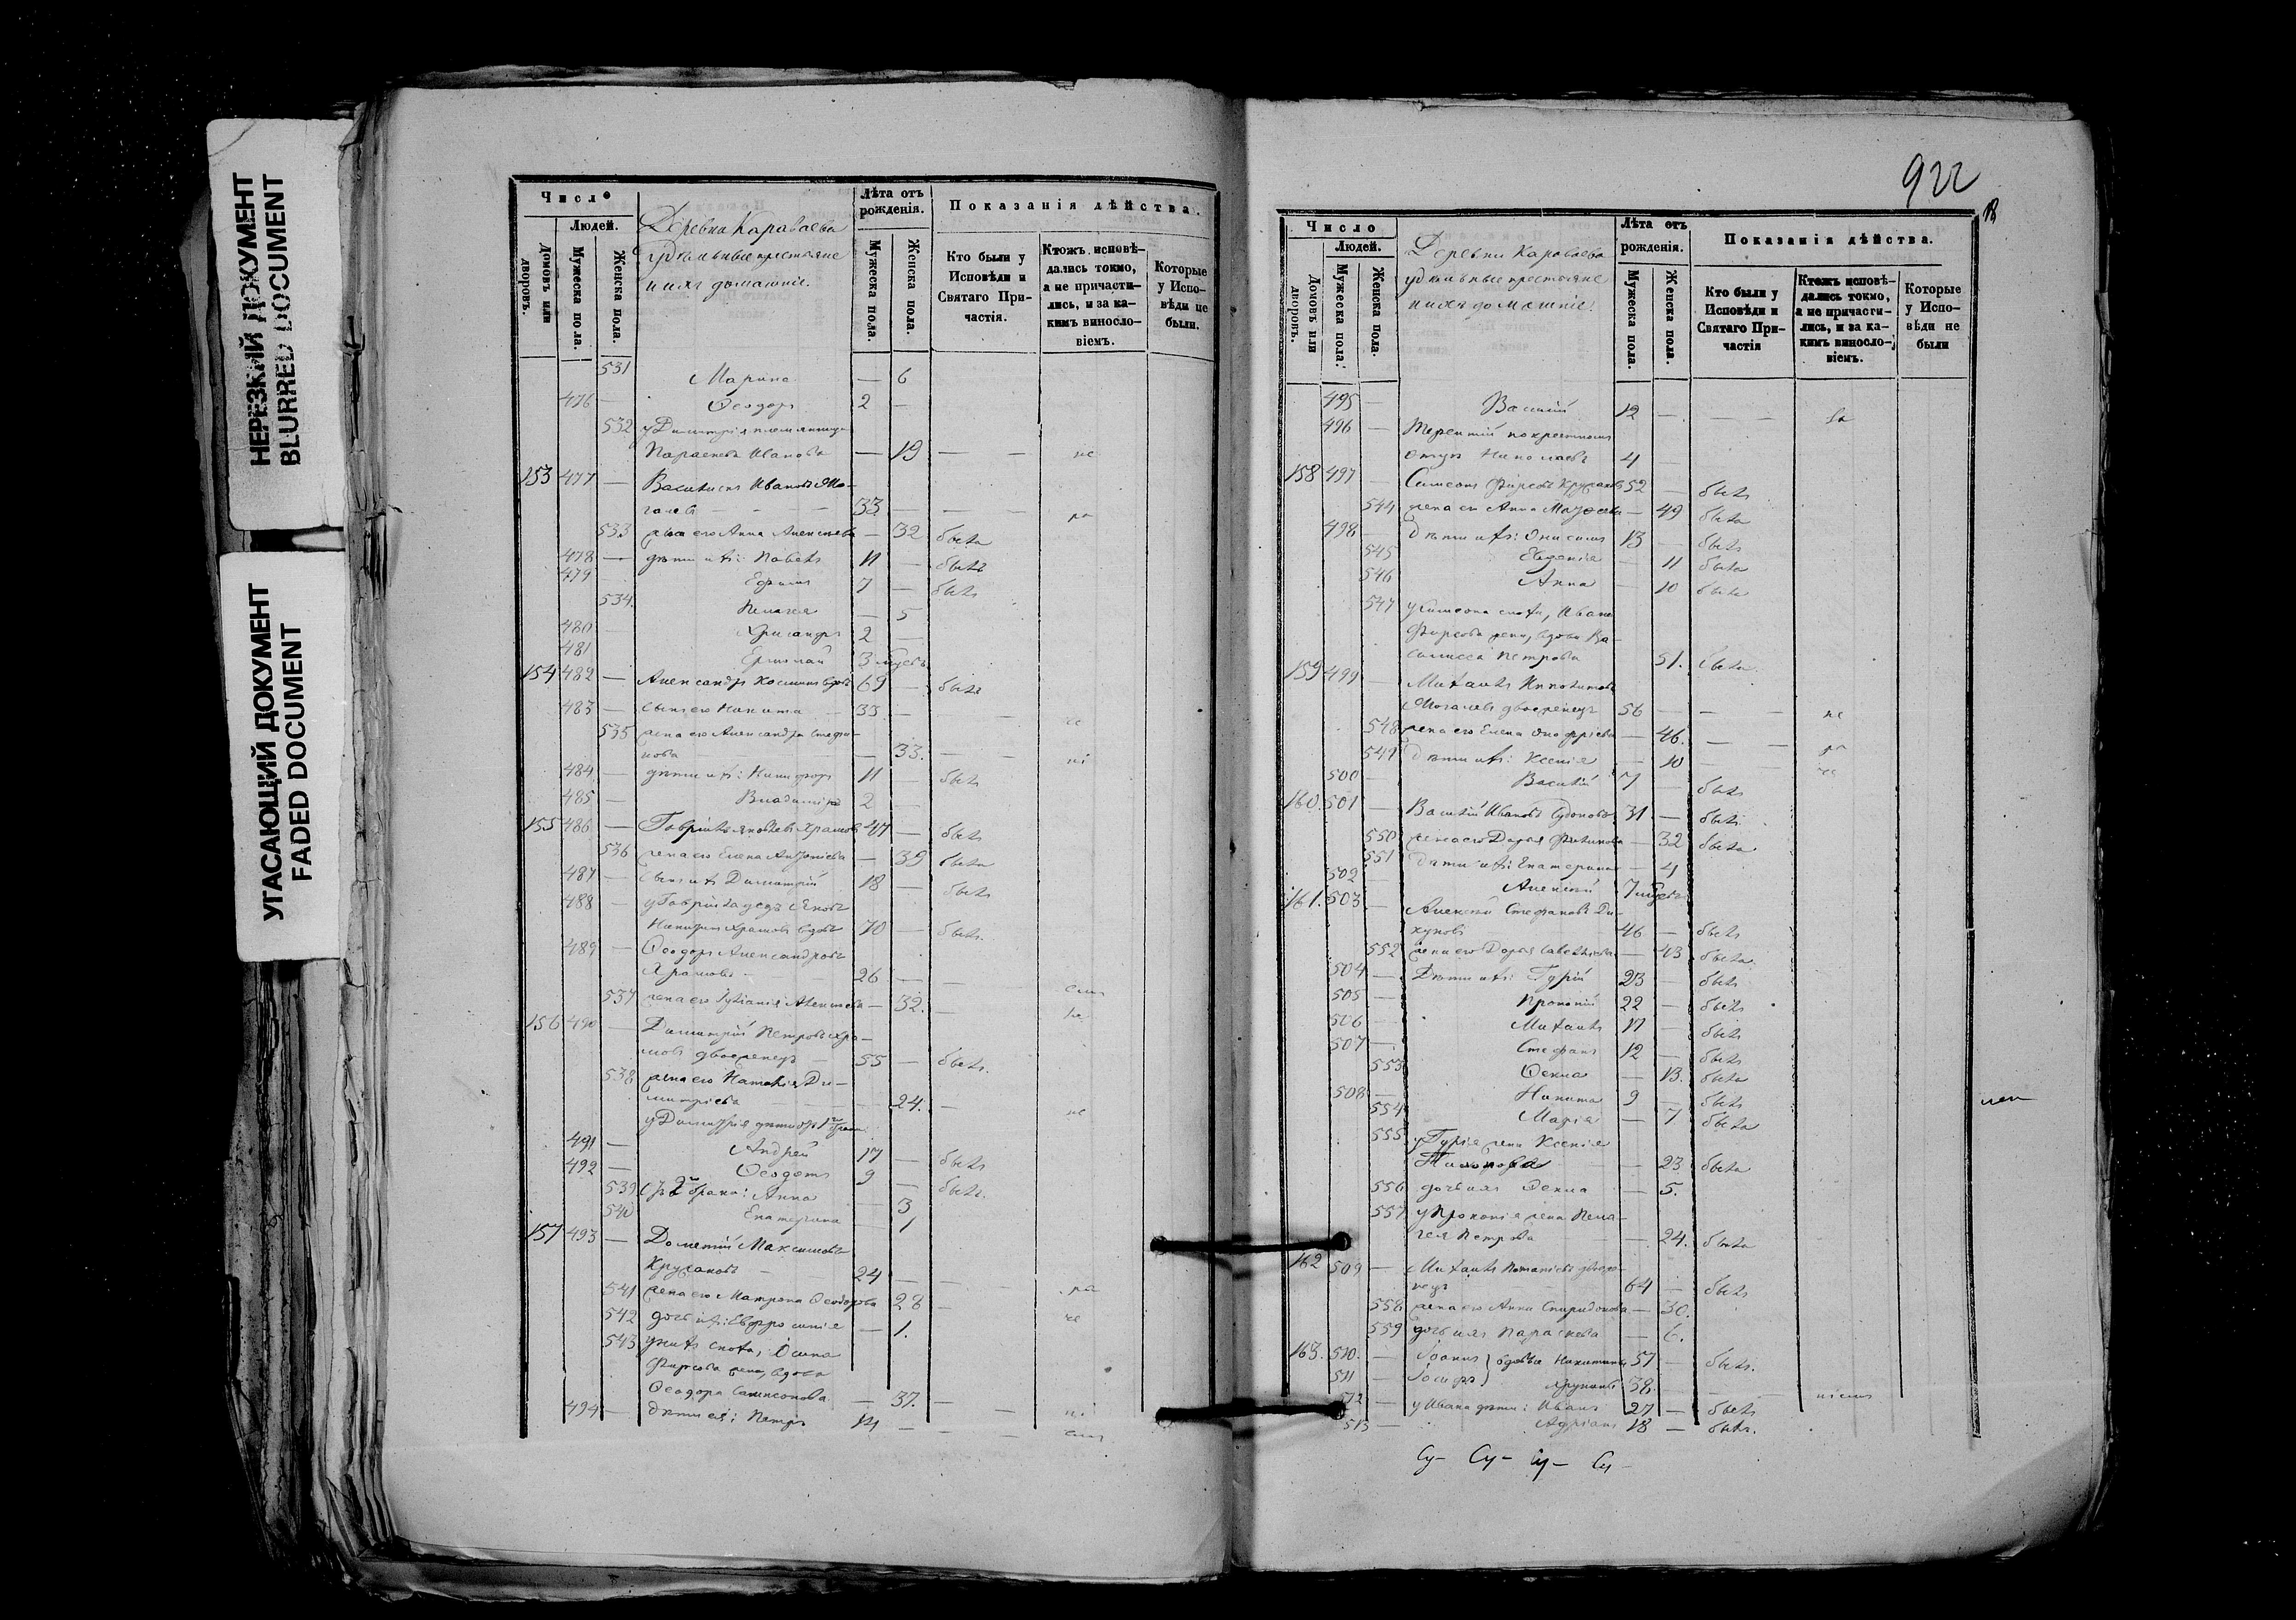 НЕРЕЗКИЙ ДОКУМЕНТ
BLURRED DOCUMENT
УГАСАЮЩИЙ ДОКУМЕНТ
FADED DOCUMENT
Число
Людей.
Домовъ или дворовъ.
Мужеска пола.
Женска пола.
Деревни Караваева
удѣльные крестьяне
и ихъ домашніе.
Лѣта отъ рожденія.
Мужеска пола.
Женска пола.
Показанія дѣйства.
Кто были у Исповѣди и Святаго Причастія.
Ктожъ исповѣдались токмо, а не причастились, и за какимъ винословіемъ.
Которые у Исповѣди не были.
531 Марина — 6
476 — Ѳеодоръ 2 —
532 у Димитрія племянница
Параскева Иванова — 19 — — не
153 477 — Василискъ Ивановъ Мо-
галевъ — — — 33 — — — ра
533 жена его Анна Алексѣева — 32 была
478 — дѣти ихъ: Павелъ 11 — былъ
479 Ефимъ 7 — былъ
534. Пелагея — 5
480 Хрисанфъ 2 —
481 Ермолай 3 мѣсяв.
154 482 — Александръ Косминъ вдовъ 69 — былъ
483 — сынъ его Никита — 33 — — не
535 жена его Александра Стефа-
нова — 33. — ні
484 — дѣти ихъ: Никифоръ 11 — былъ
485 — Владиміръ 2 —
155 486 — Гавріилъ Яковлевъ Храмовъ 47 — былъ
536 жена его Елена Антоніева — 39 была
487 — сынъ ихъ Димитрій 18 — былъ
488 — у Гавріила дядъ Яковъ
Никитинъ Храмовъ вдовъ 70 — былъ.
489 — Ѳеодоръ Александровъ
Храмовъ — 26 — —
537 жена его Іуліанія Алексѣева — 32. — не
156 490 — Димитрій Петровъ Хра-
мовъ двоеженецъ — 55 — былъ.
538 жена его Наталія Ди-
митріева — — — 24. — не
у Димитрія дѣти отъ 1го брака
491 — Андрей 17 — былъ
492 — Ѳеодотъ 9 — былъ.
539 съ 2го брака: Анна — 3
540 Екатерина — 1
157 493 — Дометій Максимовъ
Кругловъ — 24 — — — ра
541 жена его Матрона Ѳеодорова 28 — не
542 дочь ихъ: Евфросинія — 1.
543 у нихъ сноха, Осипа
Фирсова жена, вдова
Ѳеодора Самсонова — 37. — — ні
494 — дѣти ея: Петръ 14 — — —
922
Число
Людей.
Домовъ или дворовъ.
Мужеска пола.
Женска пола.
Деревни Караваева
удѣльные крестьяне
и ихъ домашніе.
Лѣта отъ рожденія.
Мужеска пола.
Женска пола.
Показанія дѣйства.
Кто были у Исповѣди и Святаго Причастія
Ктожъ исповѣдались токмо, а не причастились, и за какимъ винословіемъ.
Которые у Исповѣди не были
495 — Василій 12 — — —
496 — Терентій по крестному
отцу Николаевъ 4 —
158 497 — Симеонъ Фирсовъ 52 — былъ
544 жена его Анна — 49 была
498 — Дѣти ихъ: Онисимъ 13 — былъ
545 Евгенія — 11 была
546 Анна — 10 была
547 у Симеона сноха, Ивана
Фирсова жена, вдова Ва-
силисса Петрова 51. была.
159 499 — Михаилъ
Могалевъ двоеженецъ 56 — — — не
548 жена его Елена Онофріева — 46. — — ра
549 Дѣти ихъ: Ксенія — 10 — — не
500 — Василій 7 — былъ
160. 501 — Василій Ивановъ 31 — былъ.
550 жена его Дарья — 32 была.
551 Дѣти ихъ: Екатерина — 4
502 — Алексѣй 7 мѣсяв.
161. 503 — Алексѣй Стефановъ Ди-
куновъ 46 — былъ
552 жена его Дарья Савельева — 43 была.
504 — Дѣти ихъ: Гурій 23 — былъ
505 — Прокопій 22 — былъ
506 — Михаилъ 17 — былъ
507 — Стефанъ 12 — былъ
553 Ѳекла — 13. была
508 — Никита 9 — былъ
554 Марія — 7 была
555 у Гурія жена Ксенія
— 23 была
556 дочь ихъ Ѳекла — 5.
557 у Прокопія жена Пела-
гея Петрова — 24. была
162 509 — Михаилъ Потапіевъ двоеже-
нецъ 64 — былъ
558 жена его Анна Спиридонова — 30.
559 дочь ихъ Параскева — 6.
163. 510. — Іоаннъ } вдовые Никитины 57 — былъ.
511 — Іосифъ } 38. — —
512 — у Ивана дѣти: Иванъ 27 — былъ
513 — Адріанъ 18 — былъ.